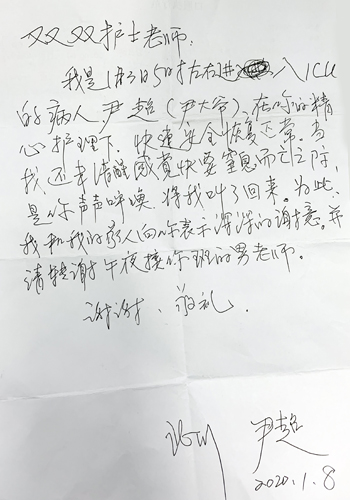 双双护士老师:
我是1月3日5时左右进入ICU
的病人尹超(尹大爷),在你的精
心护理下,快速安全恢复正常。当
我还未清醒感觉快要窒息而亡之际,
是你声声呼唤,将我叫了回来。为此,
我和我的家人向你表示深深的谢意。并
请转谢午夜接你班的男老师。
谢谢、敬礼.
尹超
2020.1.8